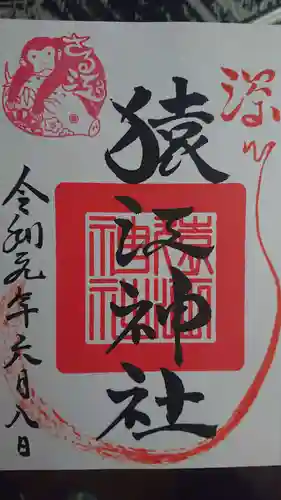 深川
猿江神社
令和元年六月八日
さるえ
猿江神社